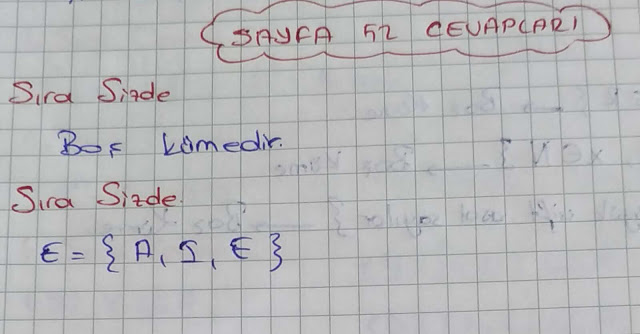 SAYFA 52 CEVAPLARI
Sıra Sizde
Boş kümedir.
Sıra Sizde.
E = { A, S, E }